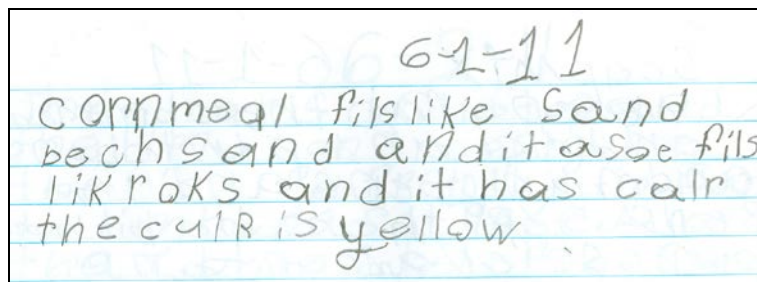 6-1-11
cornmeal fils like Sand
bechsand anditasoe fils
lik roks and it has calr
the culR is yellow